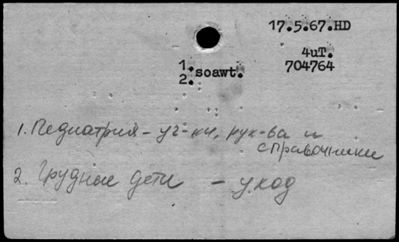 17.5.67.HD
4uT.
1. soawt. 704764
2.
1. Педиатрия - уч-ки, рук-ва и
справочники
2. Грудные дети - уход